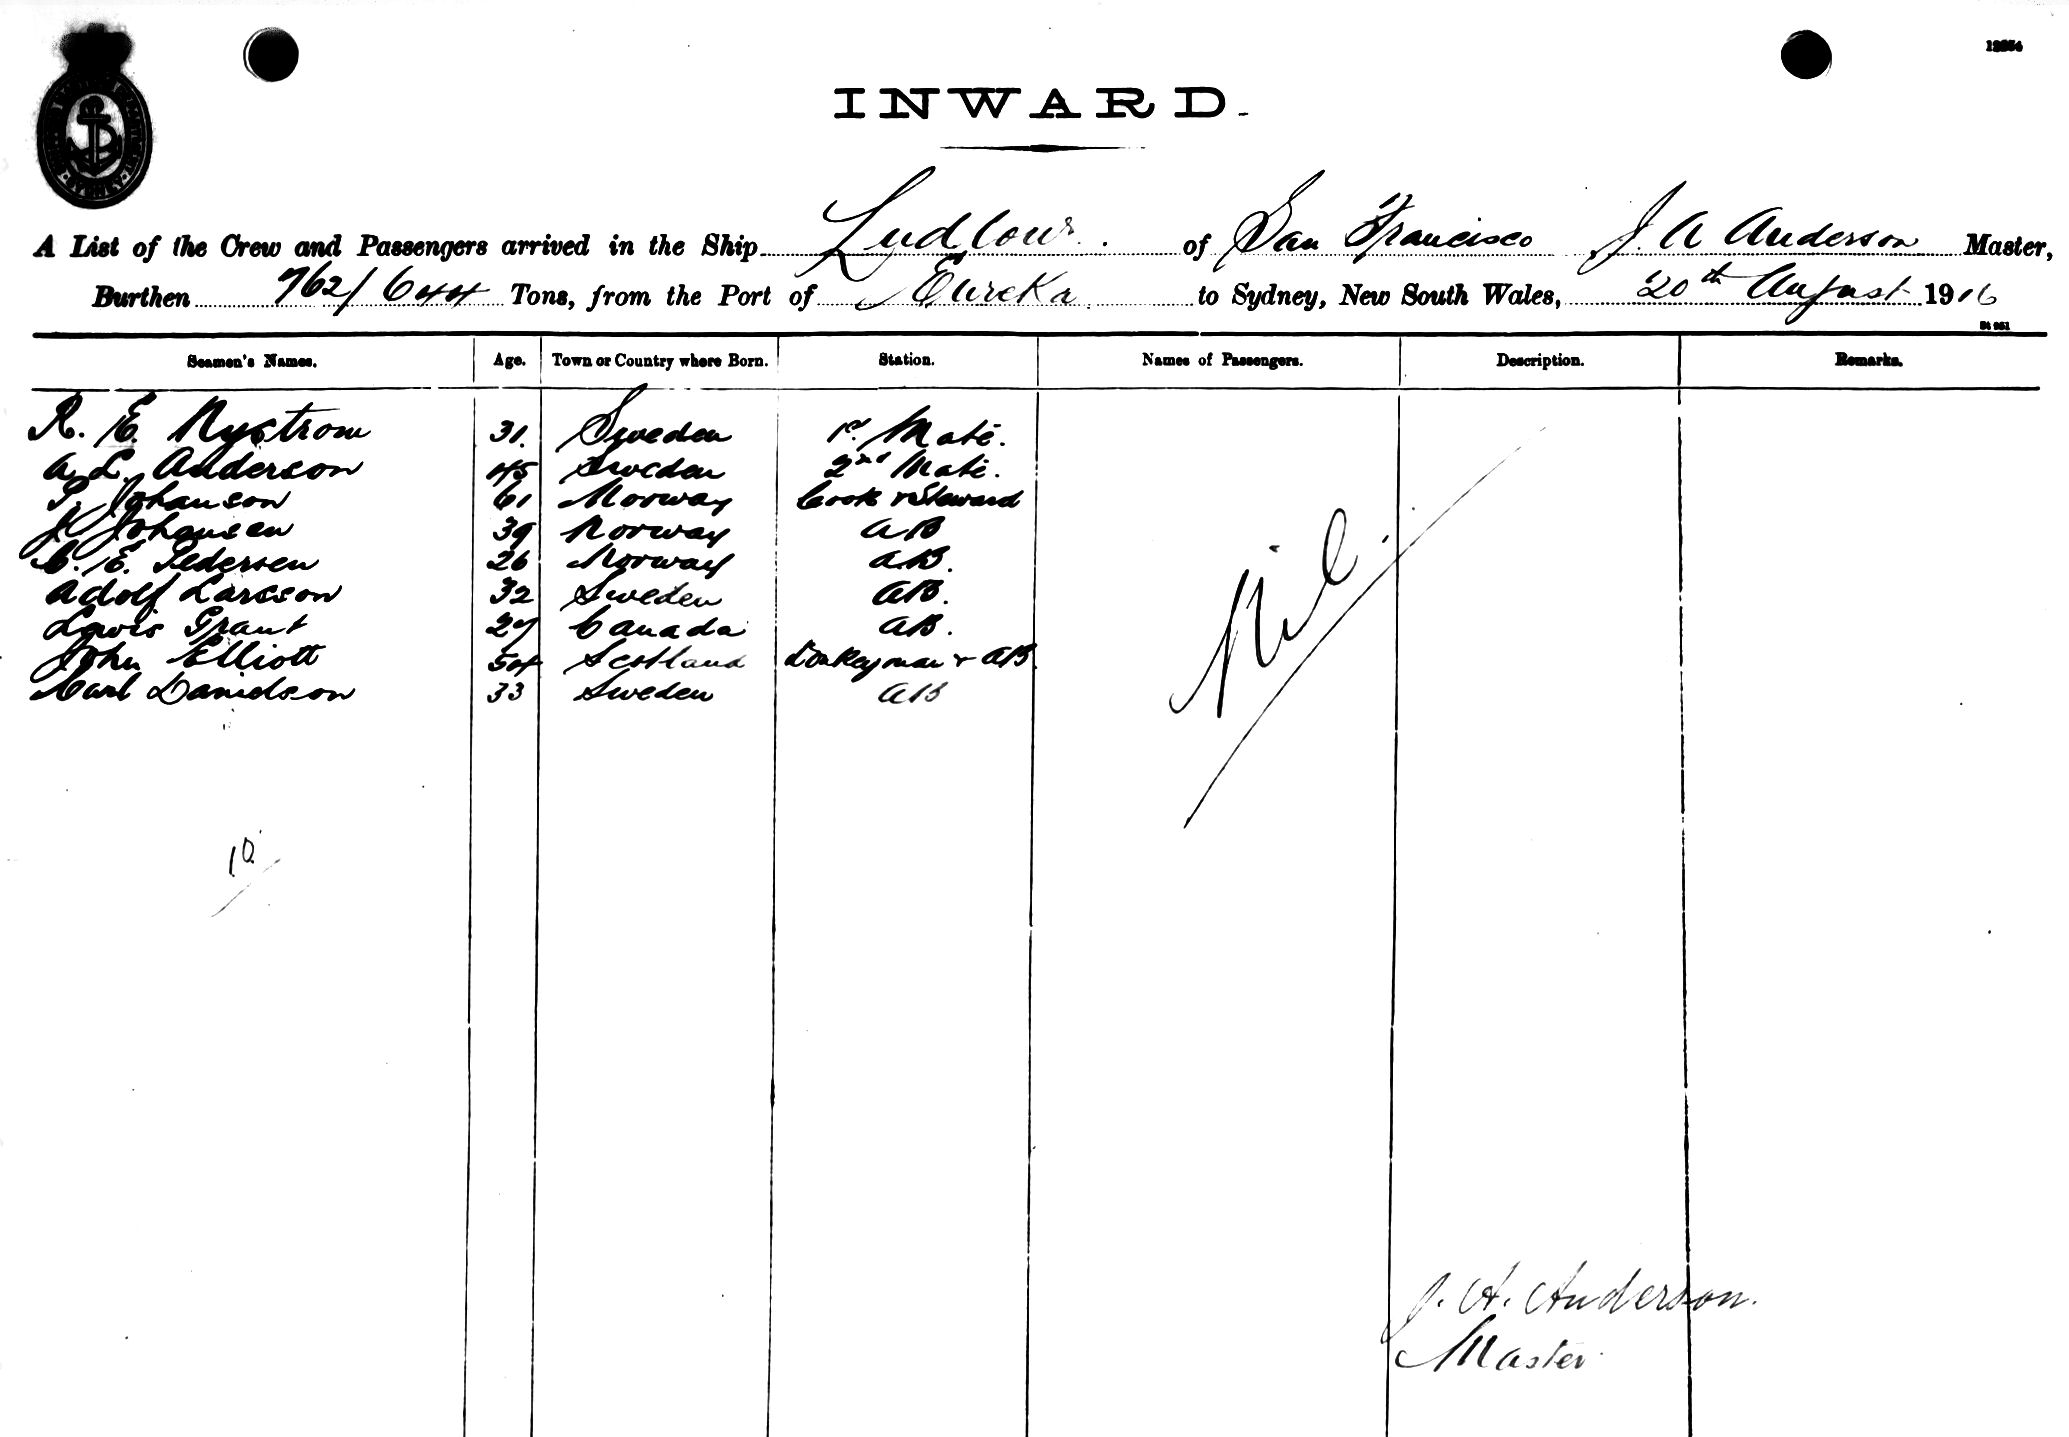 12954
INWARD.
A List of the Crew and Passengers arrived in the Ship Ludlow of San Francisco J. A Anderson Master,
Burthen 762/644 Tons, from the Port of Eureka to Sydney, New South Wales, 20th August 1916
Seamen's Names. Age. Town or Country where Born. Station. Names of Passengers. Description. Remarks.
R. E. Nystrom 31. Sweden 1st Mate.
A L. Anderson 45 Sweden 2nd Mate.
P. Johanson 61 Norway Cook & Steward
J. Johansen 39 Norway AB
C. E. Pedersen 26 Norway AB.
Adolf Larsson 32 Sweden AB.
Lewis Grant 27 Canada AB.
John Elliott 54 Scotland Donkeyman & AB
Carl Danidson 33 Sweden AB
Nil.
10
J. A. Anderson.
Master